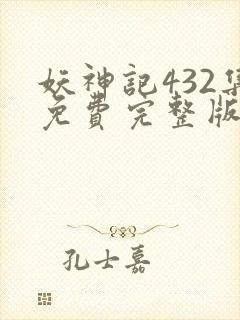 妖神記432集
免費完整版
孔士嘉